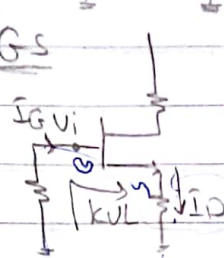 GS
IG Vi
KVL ID